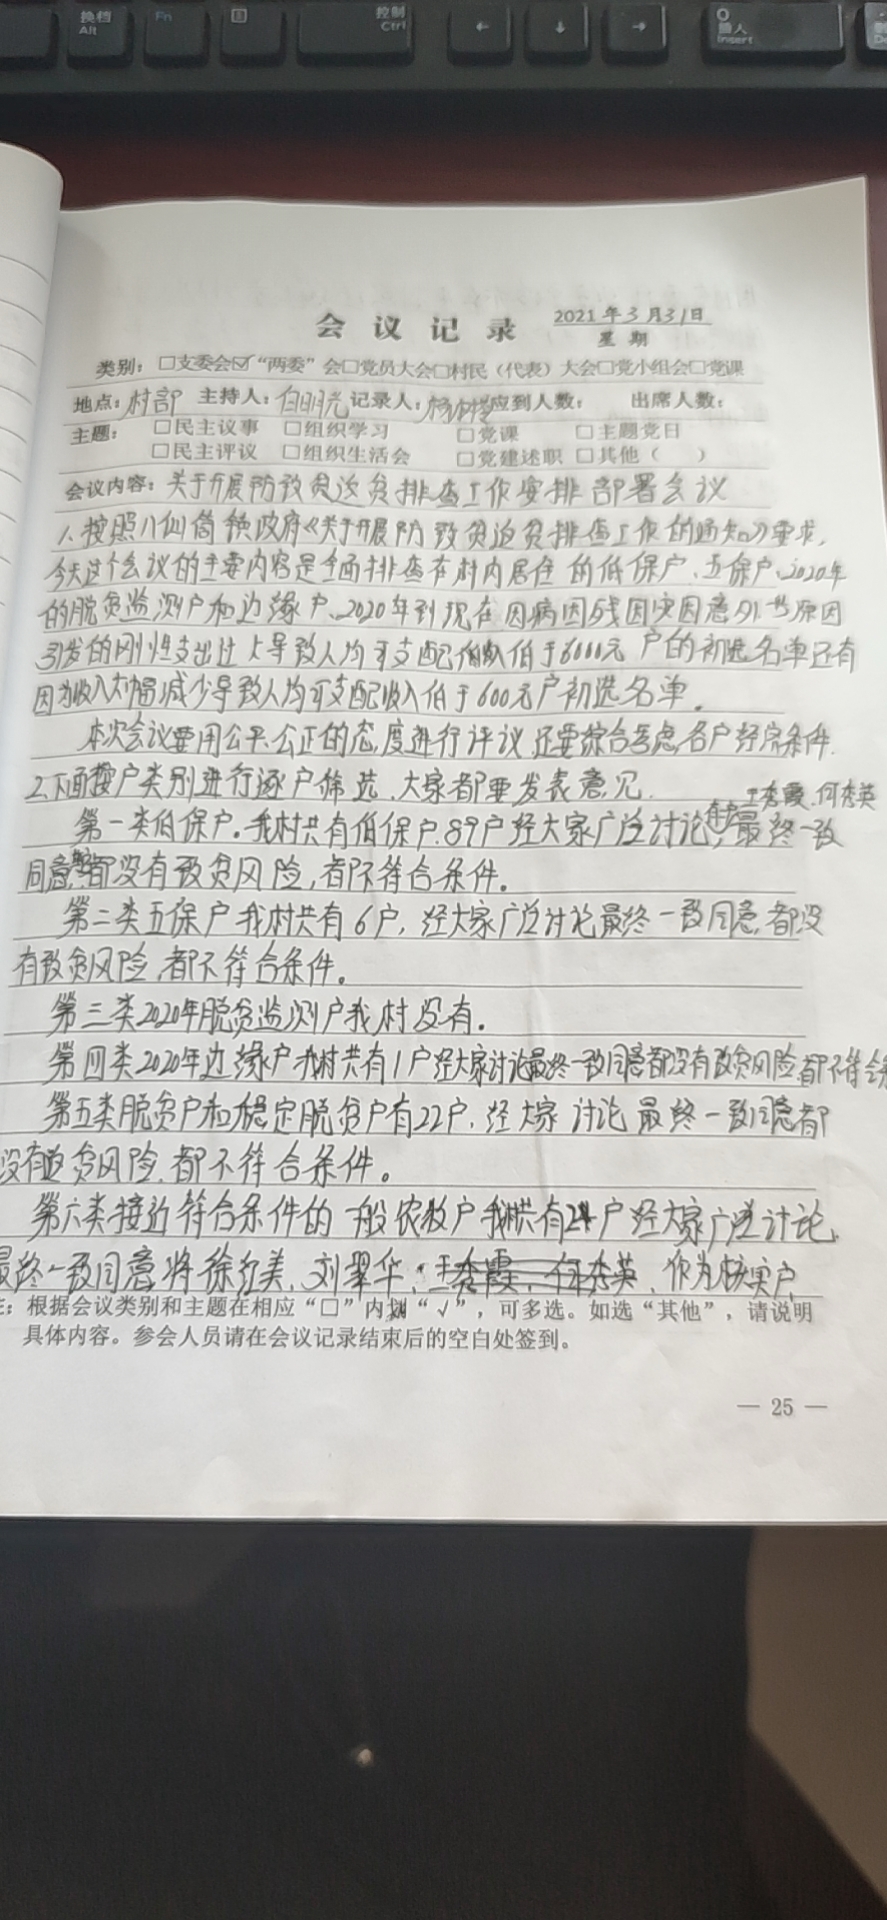 换档 Alt
Fn
控制 Ctrl
←
↓
→
插入 Insert
会 议 记 录
2021年3月31日
星 期
类别：□支委会☑“两委”会□党员大会□村民（代表）大会□党小组会□党课
地点：村部 主持人：白明光 记录人： 应到人数： 出席人数：
主题： □民主议事 □组织学习 □党课 □主题党日
□民主评议 □组织生活会 □党建述职 □其他（ ）
会议内容：关于开展防致贫返贫排查工作安排部署会议
1、按照八仙筒镇政府《关于开展防致贫返贫排查工作的通知》要求，
今天这个会议的主要内容是全面排查在村内居住的低保户、五保户、2020年
的脱贫监测户和边缘户、2020年到现在因病因残因灾因意外等原因
引发的刚性支出过大导致人均可支配收入低于6000元户的初选名单还有
因为收入大幅减少导致人均可支配收入低于600元户初选名单。
本次会议要用公平、公正的态度进行评议，还要综合考虑各户经济条件.
2、下面按户类别进行逐户筛选、大家都要发表意见.
王秀霞、何秀英
第一类低保户。我村共有低保户.89户经大家广泛讨论，最终一致
同意，都没有致贫风险，都不符合条件。
第二类五保户我村共有6户，经大家广泛讨论最终一致同意，都没
有致贫风险，都不符合条件。
第三类2020年脱贫监测户我村没有。
第四类2020年边缘户我村共有1户经大家讨论最终一致同意都没有致贫风险，都不符合条
第五类脱贫户和稳定脱贫户有22户，经大家讨论最终一致同意都
没有返贫风险，都不符合条件。
第六类接近符合条件的一般农牧户我村共有户经大家广泛讨论，
最终一致同意，将徐红美、刘翠华、王秀霞、何秀英、作为核实户
注：根据会议类别和主题在相应“□”内划“√”，可多选。如选“其他”，请说明
具体内容。参会人员请在会议记录结束后的空白处签到。
— 25 —